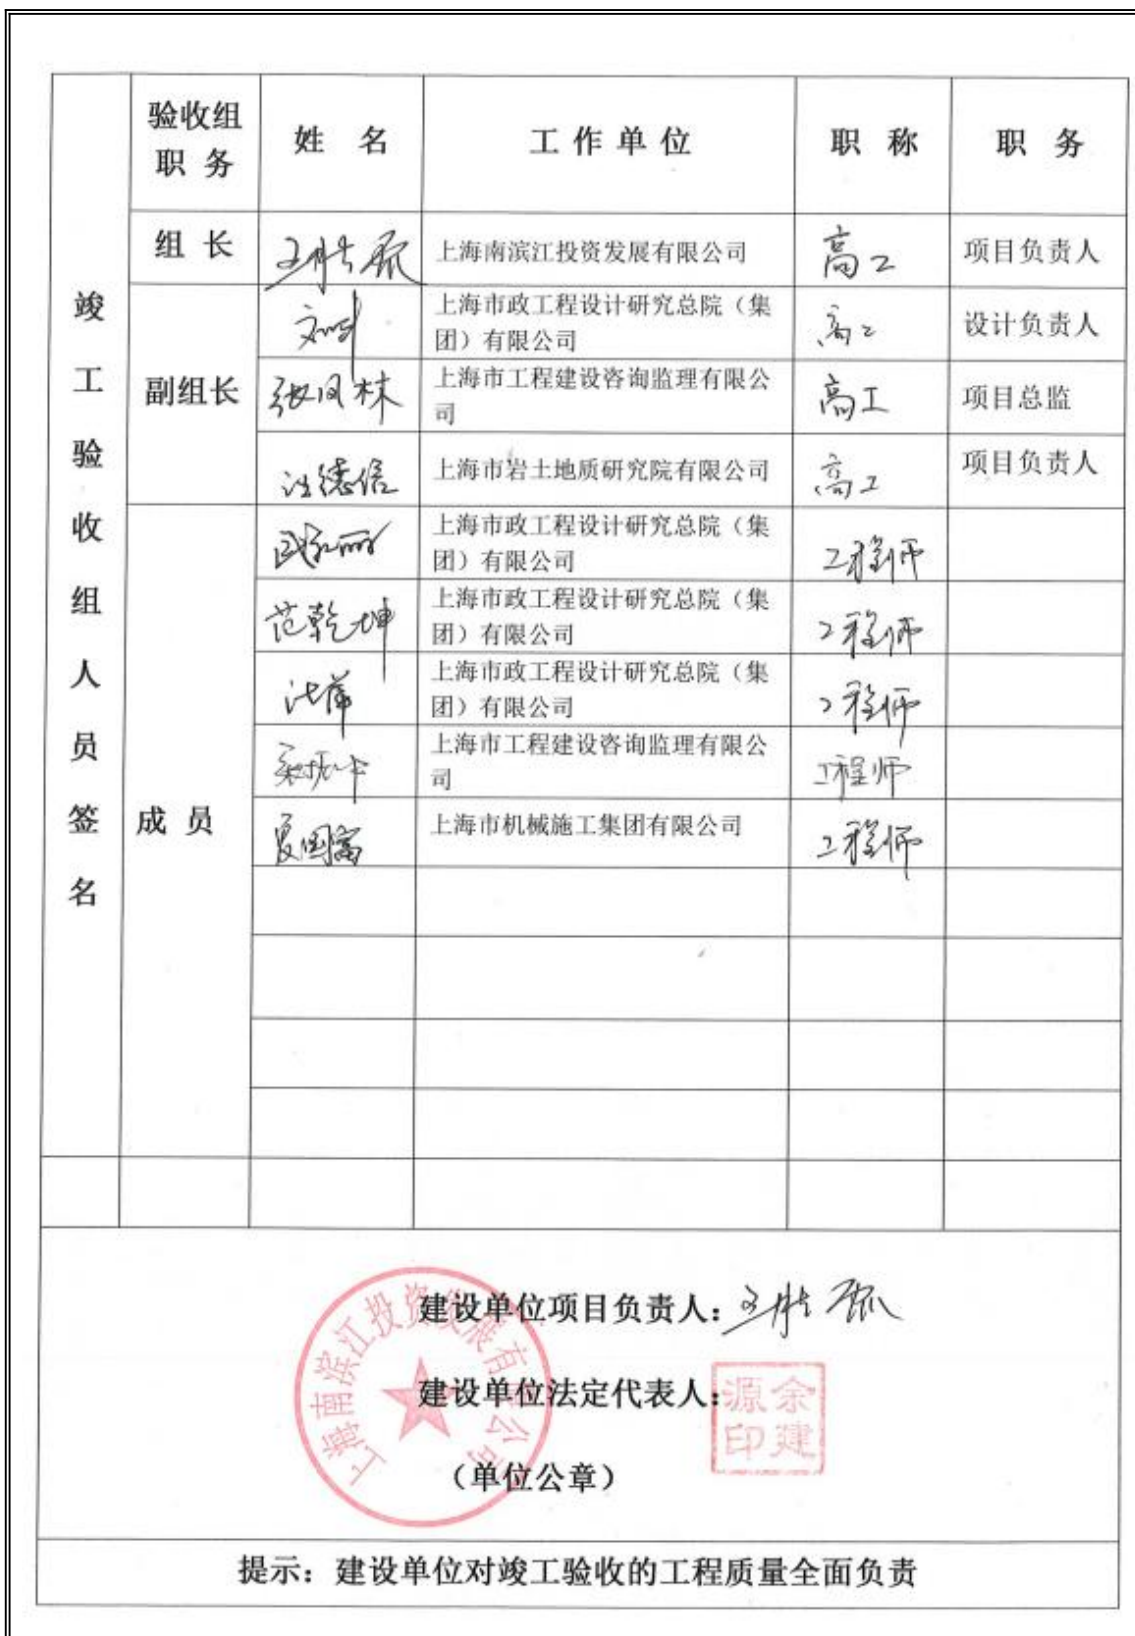 验收组
职 务
姓 名
工 作 单 位
职 称
职 务
竣工验收组人员签名
组 长
上海南滨江投资发展有限公司
高工
项目负责人
副组长
上海市政工程设计研究总院（集
团）有限公司
高工
设计负责人
张凤林
上海市工程建设咨询监理有限公
司
高工
项目总监
汪德信
上海市岩土地质研究院有限公司
高工
项目负责人
成 员
上海市政工程设计研究总院（集
团）有限公司
工程师
范乾坤
上海市政工程设计研究总院（集
团）有限公司
工程师
上海市政工程设计研究总院（集
团）有限公司
工程师
上海市工程建设咨询监理有限公
司
工程师
夏国富
上海市机械施工集团有限公司
工程师
建设单位项目负责人：
建设单位法定代表人：
余建源印
（单位公章）
上海南滨江投资发展有限公司
提示：建设单位对竣工验收的工程质量全面负责